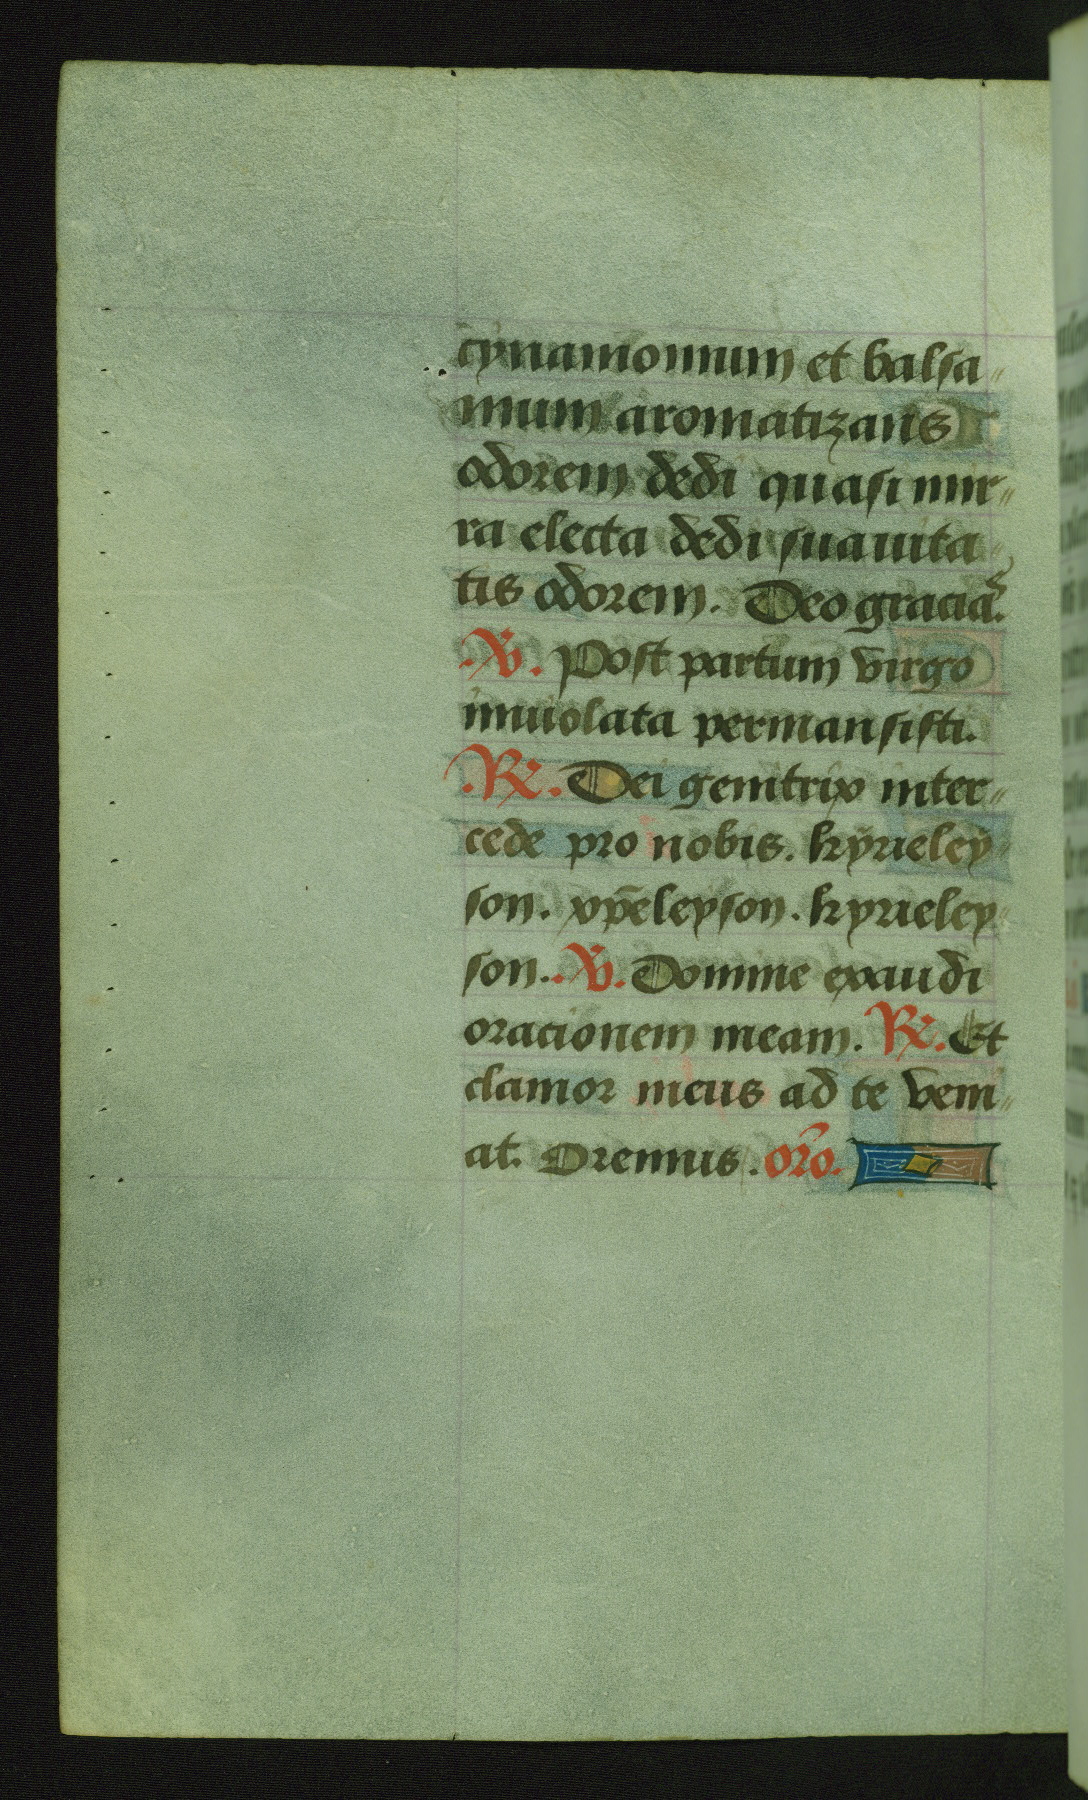 cynamomum et balsa-
mum aromatizans
odorem dedi quasi mir-
ra electa dedi suauita
tis odorem. Deo gracias.
.V. Post partum virgo
inuiolata permansisti.
.R. Dei genitrix inter-
cede pro nobis. kyrieley
son. xp̄eleyson. kyrieley
son. .V. Domine exaudi
oracionem meam. R. Et
clamor meus ad te veni-
at. Oremus. or̄o.